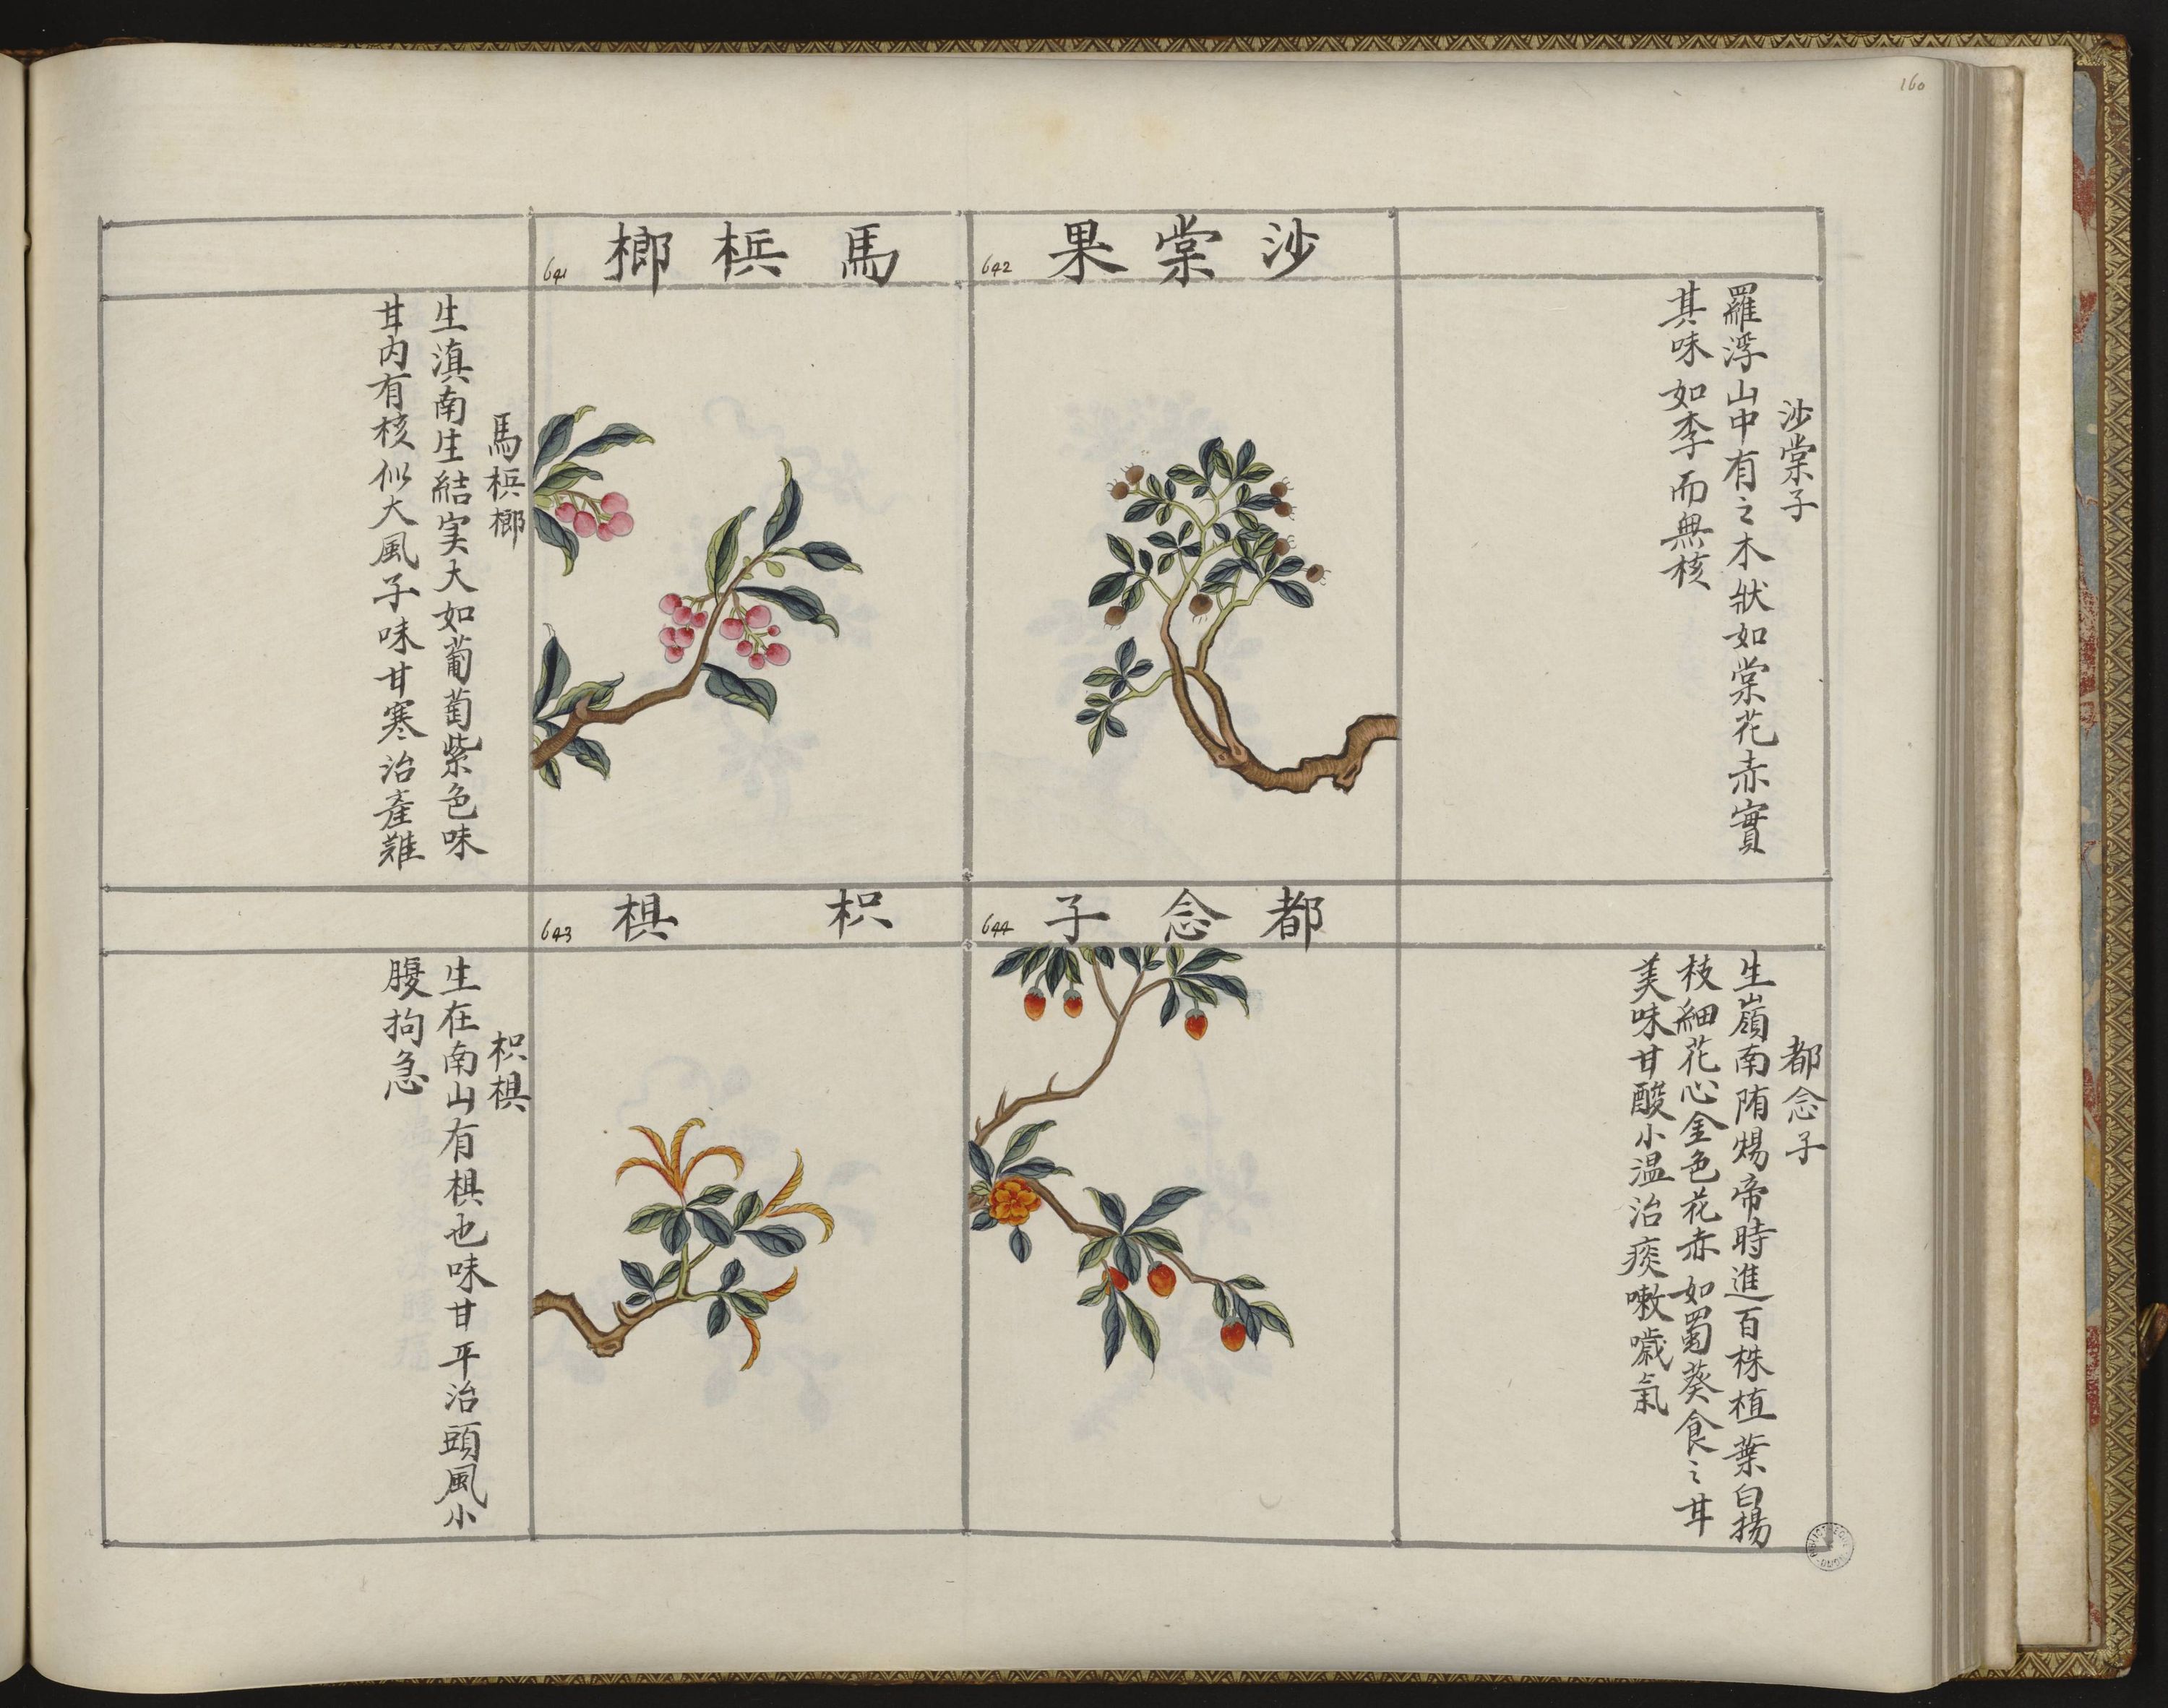 160
沙棠果
642
沙棠子
羅浮山中有之木狀如棠花赤實
其味如李而無核
馬梹榔
641
馬梹榔
生滇南生結实大如葡萄紫色味
甘内有核似大風子味甘寒治產難
都念子
644
都念子
生嶺南隋煬帝時進百株植葉白揚
枝細花心金色花赤如蜀葵食之甘
美味甘酸小温治痰嗽噦氣
枳椇
643
枳椇
生在南山有椇也味甘平治頭風小
腹拘急